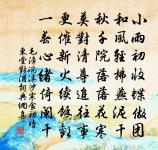 小雨初收蝶做團
和風輕拂燕泥干
秋千院落落花寒
莫對清尊追往事
更催新火續餘歡
一春心緒倚闌干
毛滂浣溪沙寒食初晴
東堂對酒詞典網書